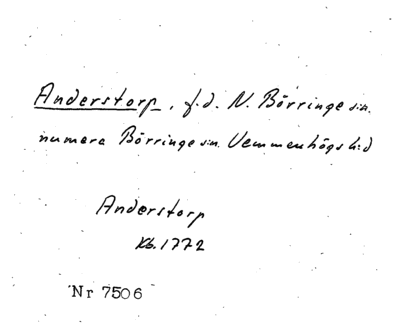 Anderstorp, f.d. N. Börringe sn.
numera Börringe sn. Vemmenhögs h:d
Anderstorp
Kb. 1772
Nr 7506